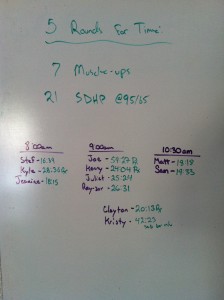 5 Rounds For Time:
7 Muscle-ups
21 SDHP @95/65
8:00am
Stef - 16:39
Kyle - 28:36 Rx
Jessica - 18:15
9:00am
Joe - 59:27 Rx
Henry - 24:04 Rx
Juliet - 25:24
Ray-zor - 26:31
10:30am
Matt - 18:18
Sam - 19:33
Clayton - 20:13 Rx
Kristy - 42:23